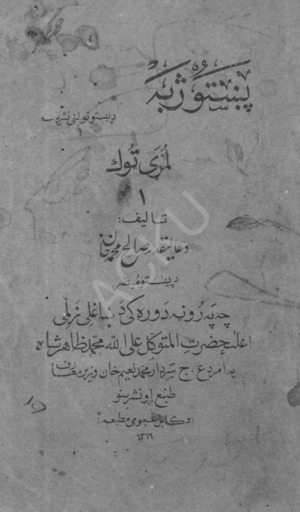 پښتو ژبه
د پښتو ټولنې نشرات
۱
لمړی ټوک
۱
تاليف:
د عاليقدر صالح محمد خان
چه په رونه دوره کی د ښاغلی ځلمی
اعلیحضرت المتوکل علی الله محمد ظاهر شاه
په امر د ع، ج سردار محمد نعيم خان وزير معارف
طبع او نشر سو
د کابل عمومی مطبعه
۱۳۱۶
ACKU